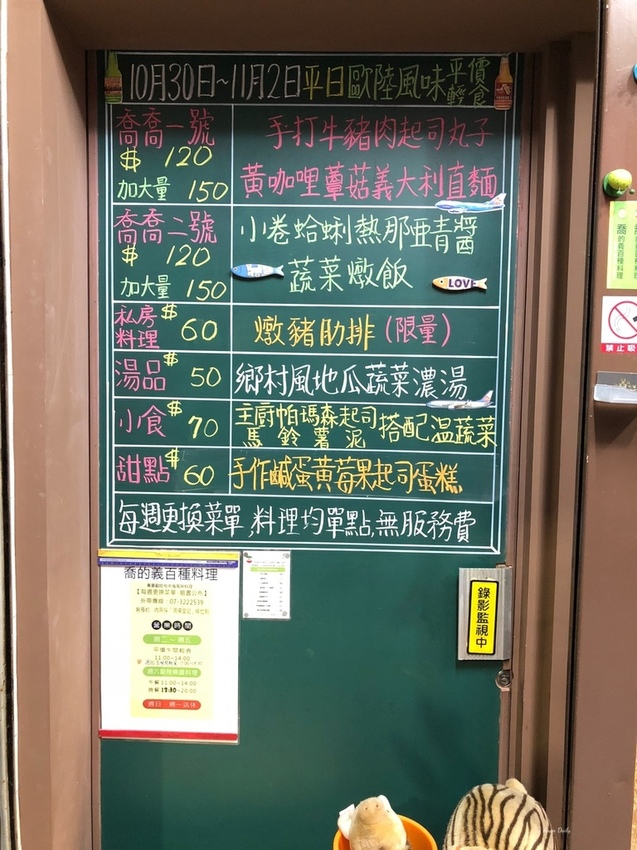 10月30日~11月2日平日歐陸風味平價輕食
喬喬一號
$120
加大量 150
手打牛豬肉起司丸子
黃咖哩蕈菇義大利直麵
喬喬二號
$120
加大量 150
小卷蛤蜊熱那亞青醬
蔬菜燉飯
LOVE
私房料理 $60
燉豬肋排(限量)
湯品 $50
鄉村風地瓜蔬菜濃湯
小食 $70
主廚帕瑪森起司馬鈴薯泥搭配溫蔬菜
甜點 $60
手作鹹蛋黃莓果起司蛋糕
每週更換菜單,料理均單點,無服務費
喬的義百種料理
外帶專線:07-3222539
營業時間
週二~週五
11:00~14:00
午餐 11:00~14:00
晚餐 17:30~20:00
週日、週一店休
錄影監視中
喬的義百種料理
禁止吸